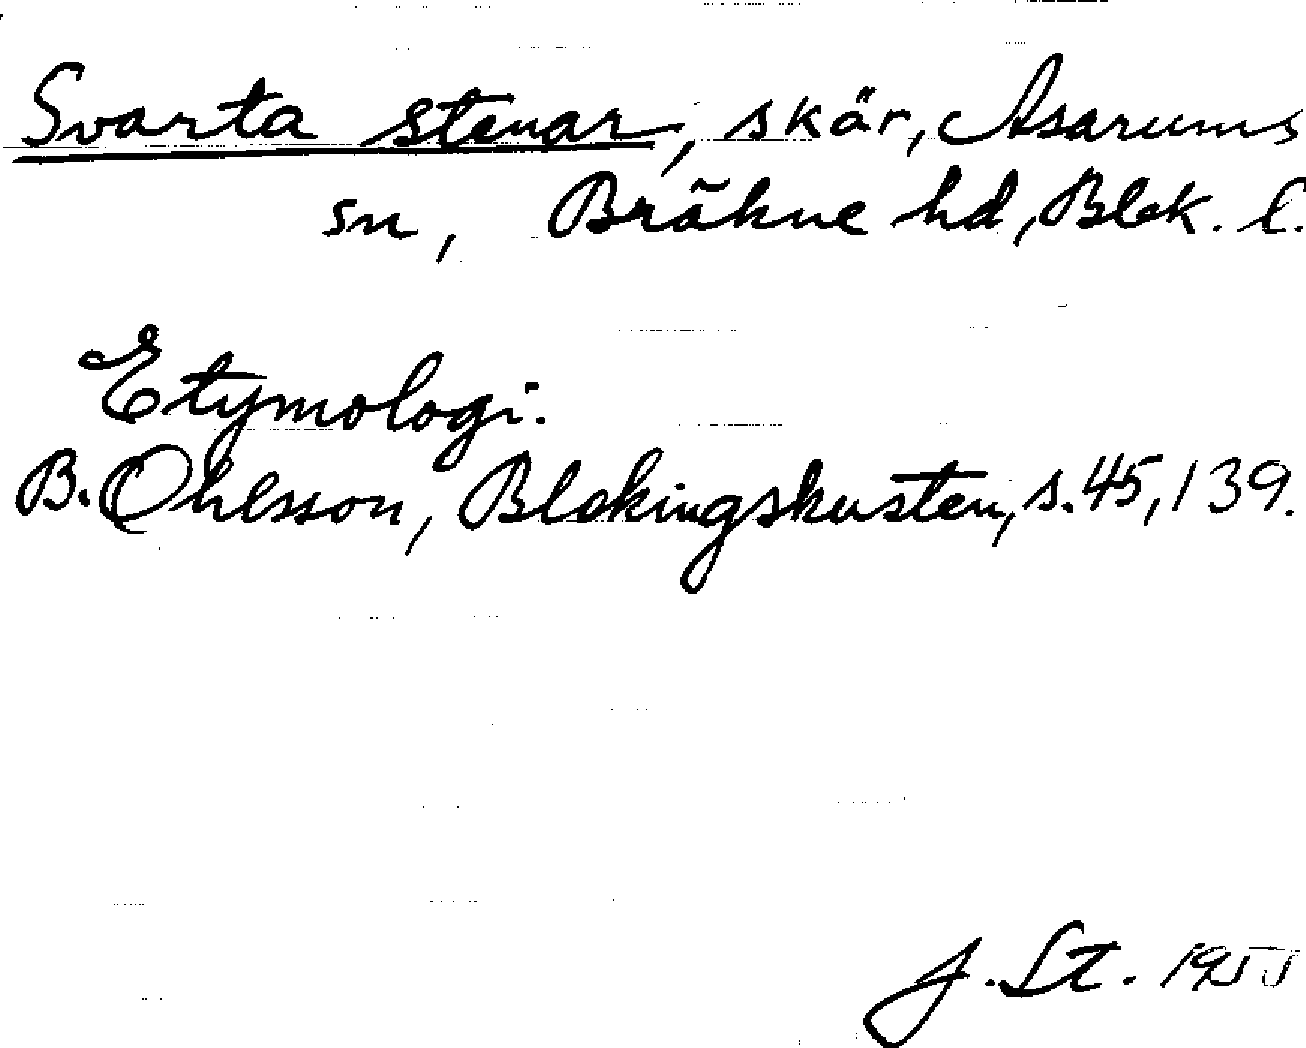 Svarta stenar, skär, Asarums
sn, Bräkne hd, Blek. l.
Etymologi.
B. Ohlsson, Blekingskusten, s. 45, 139.
J. St. 1955